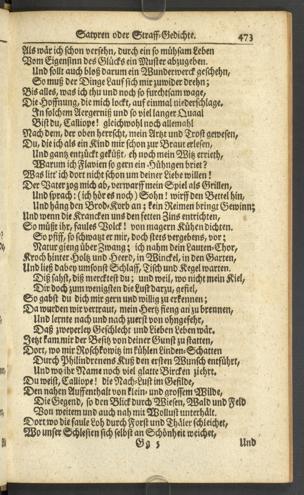 Satyren oder Straff-Gedichte. 473
Als wår ich schon versehn, durch ein so mühsam Leben
Vom Eigensinn des Glücks ein Muster abzugeben.
Und sollt auch bloß darum ein Wunderwerck geschehn,
So muß der Dinge Lauf sich mir zuwider drehn;
Bis alles, was ich thu und noch so furchtsam wage,
Die Hoffnung, die mich lockt, auf einmal niederschlage.
In solchem Aergernüß und so viel langer Quaal
Bist du, Calliope! gleichwohl noch allemahl
Nach dem, der oben herrscht, mein Artzt und Trost gewesen,
Du, die ich als ein Kind mir schon zur Braut erlesen,
Und gantz entzückt geküßt, eh noch mein Witz errieth,
Warum ich Flavien so gern ein Hühngen briet?
Was litt ich dort nicht schon um deiner Liebe willen!
Der Vater zog mich ab, verwarff mein Spiel als Grillen,
Und sprach: (ich hör es noch) Sohn! wirff den Bettel hin,
Und häng den Brodt-Korb an; kein Reimen bringt Gewinn;
Und wenn die Krancken uns den fetten Zins entrichten,
So müßt ihr, faules Volck! von magern Kühen dichten.
So pfiff, so schwatzt er mir, doch stets vergebens, vor;
Natur gieng über Zwang; ich nahm dein Lauten-Chor,
Kroch hinter Holtz und Heerd, in Winckel, in den Garten,
Und ließ davor umsonst Schlaff, Tisch und Kegel warten.
Diß sahst, diß mercktest du; und weil, wo nicht mein Kiel,
Dir doch zum wenigsten die Lust darzu, gefiel,
So gabst du dich mir gern und willig zu erkennen;
Da wurden wir vertraut, mein Hertz fieng an zu brennen,
Und lernte nach und nach zuerst von ohngefehr,
Daß zweyerley Geschlecht und Lieben Leben wär.
Jetzt kam mit der Besitz von deiner Gunst zu statten,
Dort, wo mir Roschkowitz im kühlen Linden-Schatten
Durch Philindrenens Kuß den ersten Wunsch entführt,
Und wo ihr Name noch viel glatte Bircken ziehrt.
Du weist, Calliope! die Nach-Lust im Gefilde,
Den nahen Auffenthalt von klein- und grossem Wilde,
Die Gegend, so den Blick durch Wiesen, Wald und Feld
Von weitem und auch nah mit Wollust unterhält.
Dort wo die faule Loh durch Forst und Thäler schleichet,
Wo unser Schlesien sich selbst an Schönheit weichet,
Gg 5 Und